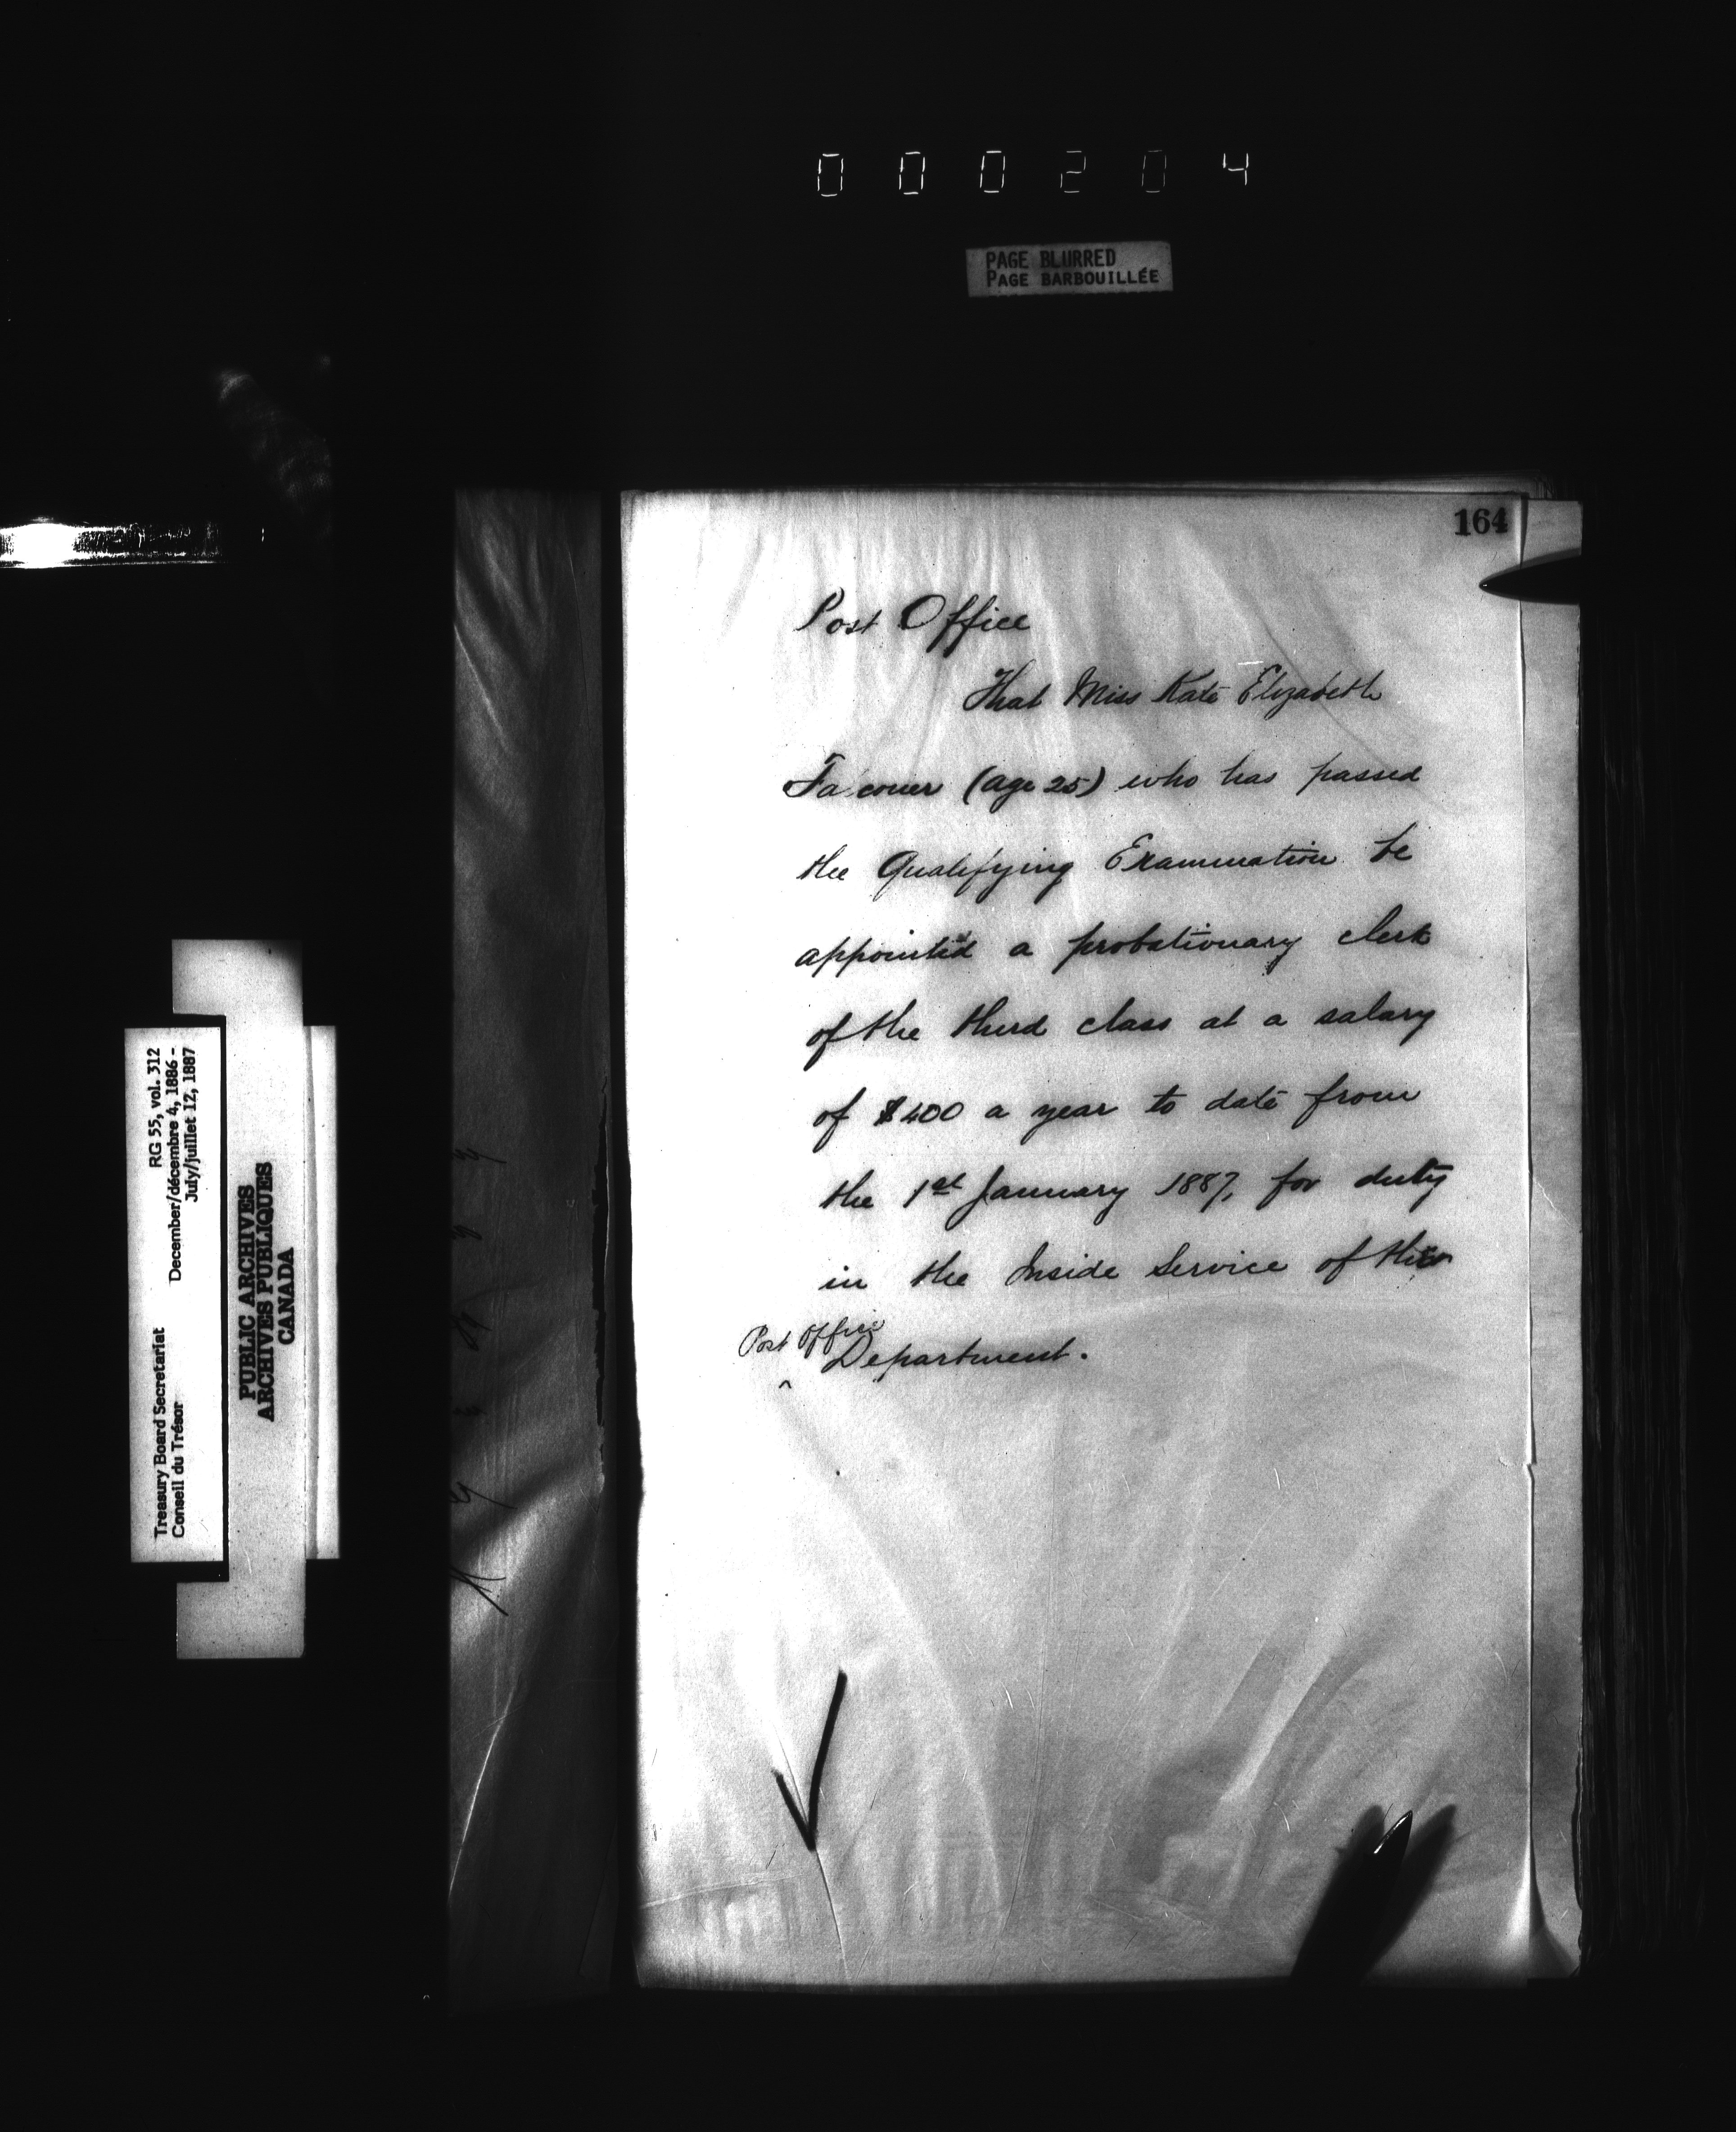 000204
PAGE BLURRED
PAGE BARBOUILLÉE
164
Post Office
That Miss Kate Elizabeth
(age 25) who has passed
the Qualifying Examination be
appointed a probationary clerk
of the third class at a salary
of $400 a year to date from
the 1st January 1887, for duty
in the Inside Service of the
Post Office
Department.
RG 55, vol. 312
December/décembre 4, 1886 -
July/juillet 12, 1887
Treasury Board Secretariat
Conseil du Trésor
PUBLIC ARCHIVES
ARCHIVES PUBLIQUES
CANADA